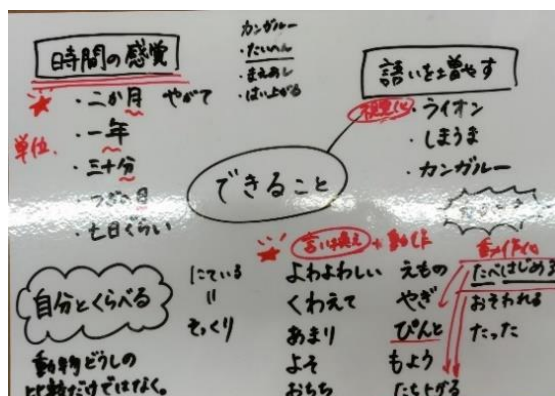 時間の感覚
・二か月 やがて
・一年
・三十分
・つぎの日
・七日ぐらい
単位
カンガルー
・たいへん
・まえあし
・はい上がる
語いを増やす
視覚化
・ライオン
・しまうま
・カンガルー
できること
自分とくらべる
動物どうしの
比較だけではなく。
にている
||
そっくり
言い換え + 動作化
よわよわしい
くわえて
あまり
よそ
おちち
えもの
やぎ
ぴんと
もよう
たち上がる
動作化
たべはじめる
おそわれる
たった